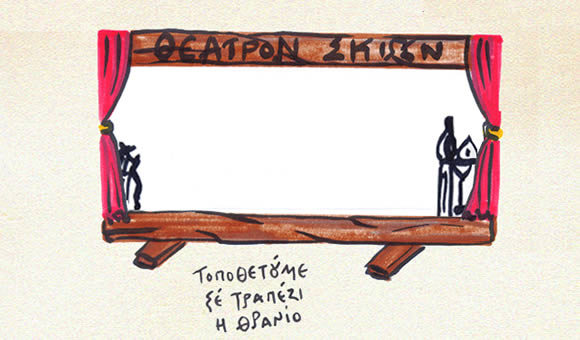 ΘΕΑΤΡΟΝ ΣΚΙΩΝ
ΤΟΠΟΘΕΤΟΎΜΕ
ΣΈ ΤΡΑΠΈΖΙ
Η ΘΡΑΝΙΟ